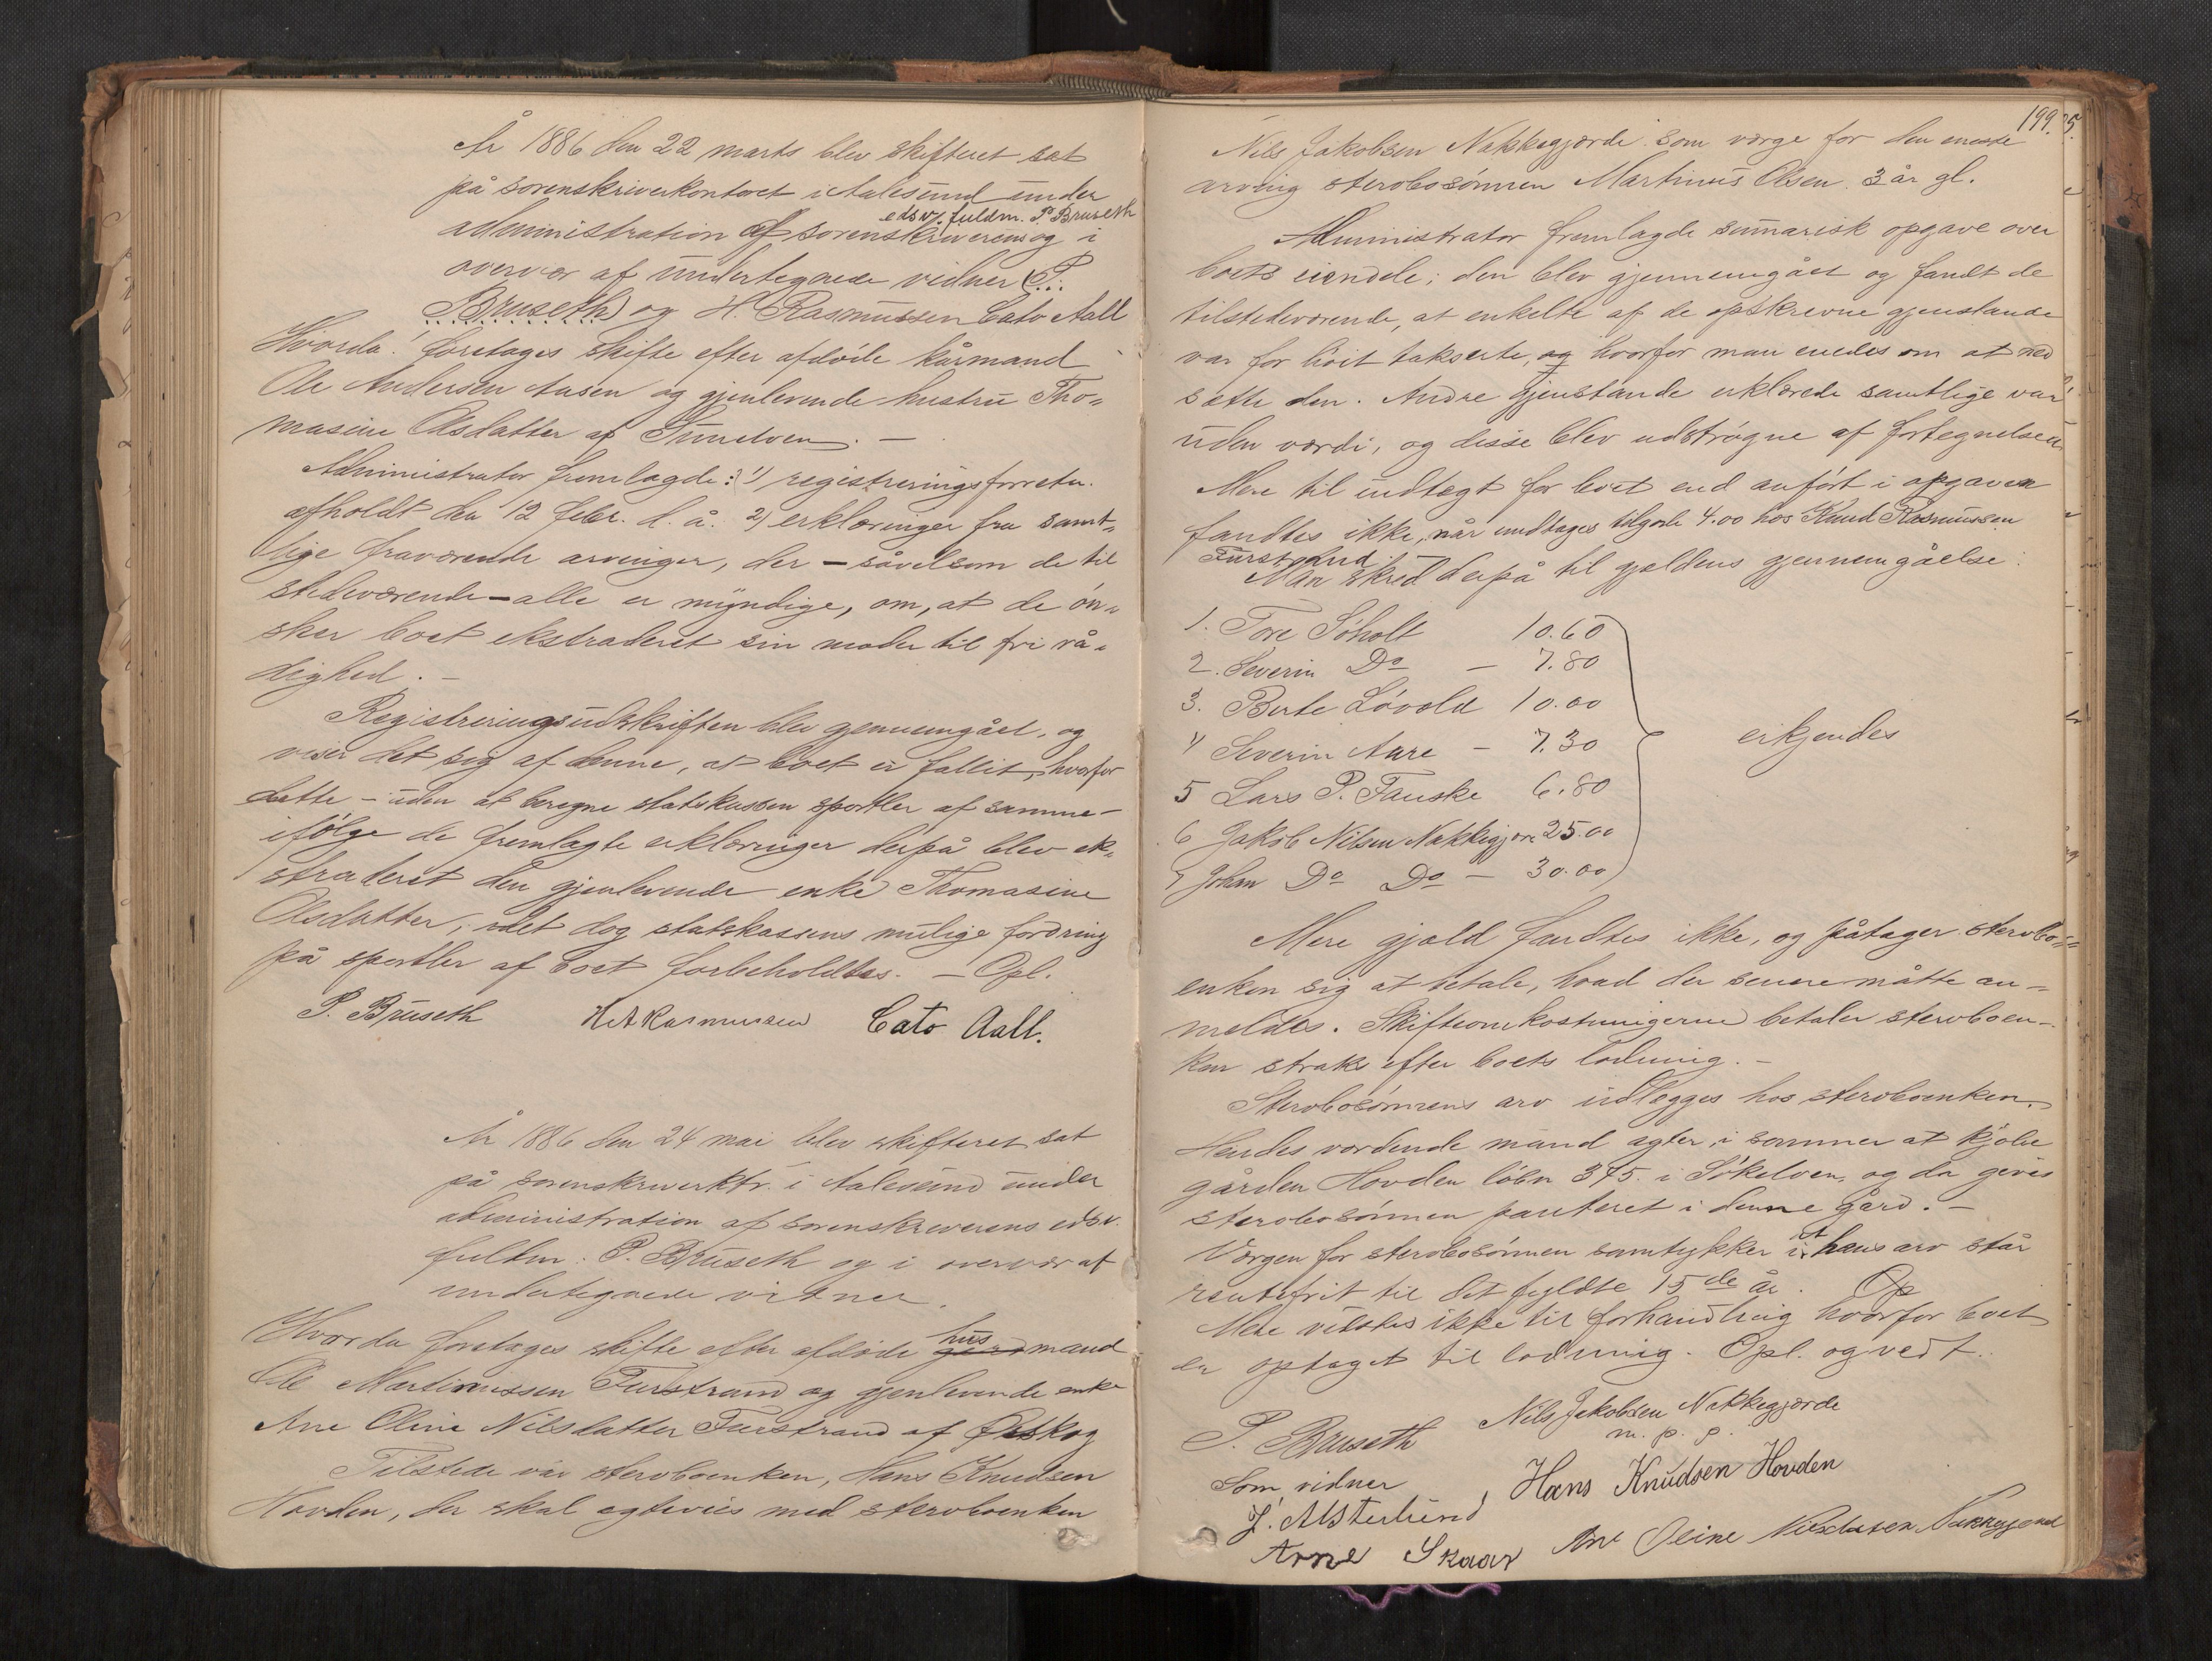 År 1886 den 22 marts blev skifteret sat
på sorenskriverkontoret i Aalesund under
edsv. fuldm. P Bruseth
administration af sorenskriverens og i
overvær af undertegnede vidner (P.
Bruseth) og H. Rasmussen Cato Aall
Hvorda foretages skifte efter afdøde kårmand
Ole Andersen Aasen og gjenlevende hustru Tho-
masine Olsdatter af Sunelven. —
Administrator fremlagde: 1) registreringsforretn.
afholdt den 12 febr. d. å. 2) erklæringer fra samt-
lige fraværende arvinger, der – såvelsom de til
stedeværende – alle er myndige, om, at de øn-
sker boet ekstraderet sin moder til fri rå-
dighed. —
Registreringsudskriften blev gennemgået, og
viser det sig af denne, at boet er fallit, hvorfor
dette – uden at beregne statskassen sportler af samme –
ifølge de fremlagte erklæringer derpå blev ek-
straderet den gjenlevende enke Thomasine
Olsdatter, idet dog statskassens mulige fordring
på sportler af boet forbeholdtes. — Opl.
P. Bruseth H A Rasmussen Cato Aall.
År 1886 den 24 mai blev skifteret sat
på sorenskriverktr. i Aalesund under
administration af sorenskriverens edsv.
fuldm. P. Bruseth og i overvær af
undertegnede vidner.
Hvorda foretages skifte efter afdøde gård hus mand
Ole Martinussen Furstrand og gjenlevende enke
Ane Oline Nilsdatter Furstrand af Ørskog
Tilstede var stervboenken, Hans Knudsen
Hovden, der skal ægtevies med stervboenken
199.
Nils Jakobsen Nakkegjærde som værge for den eneste
arving stervbosønnen Martinus Olsen 3 år gl.
Administrator fremlagde summarisk opgave over
boets eiendele; den blev gjennemgået og fandt de
tilstedeværende, at enkelte af de opskrevne gjenstande
var for høit takserte, og hvorfor man enedes om at ned
sætte den. Andre gjenstande erklærede samtlige var
uden værdi, og disse blev udstrøgne af fortegnelsen
Mere til indtægt for boet end anført i opgaven
fandtes ikke, når undtages tilgode 4.00 hos Knud Rasmussen
Furstrand
Man skred derpå til gjældens gjennemgåelse:
1. Tore Søholt 10.60
2. Severin Do — 7.80
3. Berte Løvold 10.00
4 Severin Aure — 7.30
5 Lars P. Fauske 6.80
6 Jakob Nilsen Nakkegjære 25.00
7 Johan Do Do — 30.00
erkjendes
Mere gjæld fandtes ikke, og påtager stervbo-
enken sig at betale, hvad der senere måtte an-
meldes. Skifteomkostningerne betaler stervboen-
ken straks efter boets lodning. —
Stervbosønnens arv udlægges hos stervboenken.
Hendes vordende mand agter i sommer at kjøbe
gården Hovden løbn 375. i Søkelven, og da gives
stervbosønnen panteret i denne gård. —
Værgen for stervbosønnen samtykker i at hans arv står
rentefrit til det fyldte 15de år. Op
Mere vilstes ikke til forhandling hvorfor boet
er optaget til lodning. Opl. og vedt.
P. Bruseth Nils Jakobsen Nakkegjærde
m. p. p.
Som vidner Hans Knudsen Hovden
J. Alsterlund
Arne Skaar Ane Oline Nilsdater Nakkegjerd